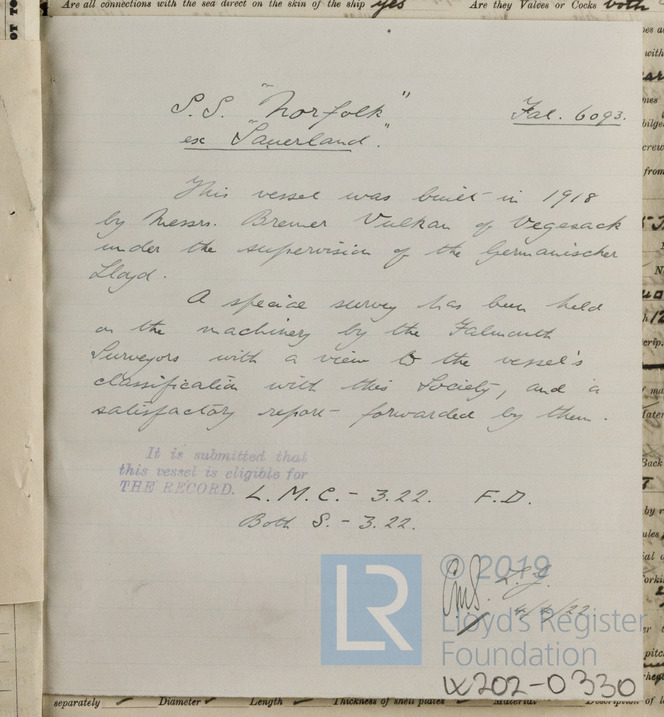 Are all connections with the sea direct on the skin of the ship yes Are they Valves or Cocks both
S.S. "Norfolk" Fal. 6093.
ex "Sauerland".
This vessel was built in 1918
by Messrs. Bremer Vulkan of Vegesack
under the supervision of the Germanischer
Lloyd.
A special survey has been held
on the machinery by the Falmouth
Surveyors with a view to the vessel's
classification with this Society, and a
satisfactory report forwarded by them.
It is submitted that
this vessel is eligible for
THE RECORD. L.M.C. - 3.22. F.D.
Both S. - 3.22.
© 2019
LR
Lloyd's Register
Foundation
W202-0330
separately Diameter Length Thickness of shell plates Material Description of